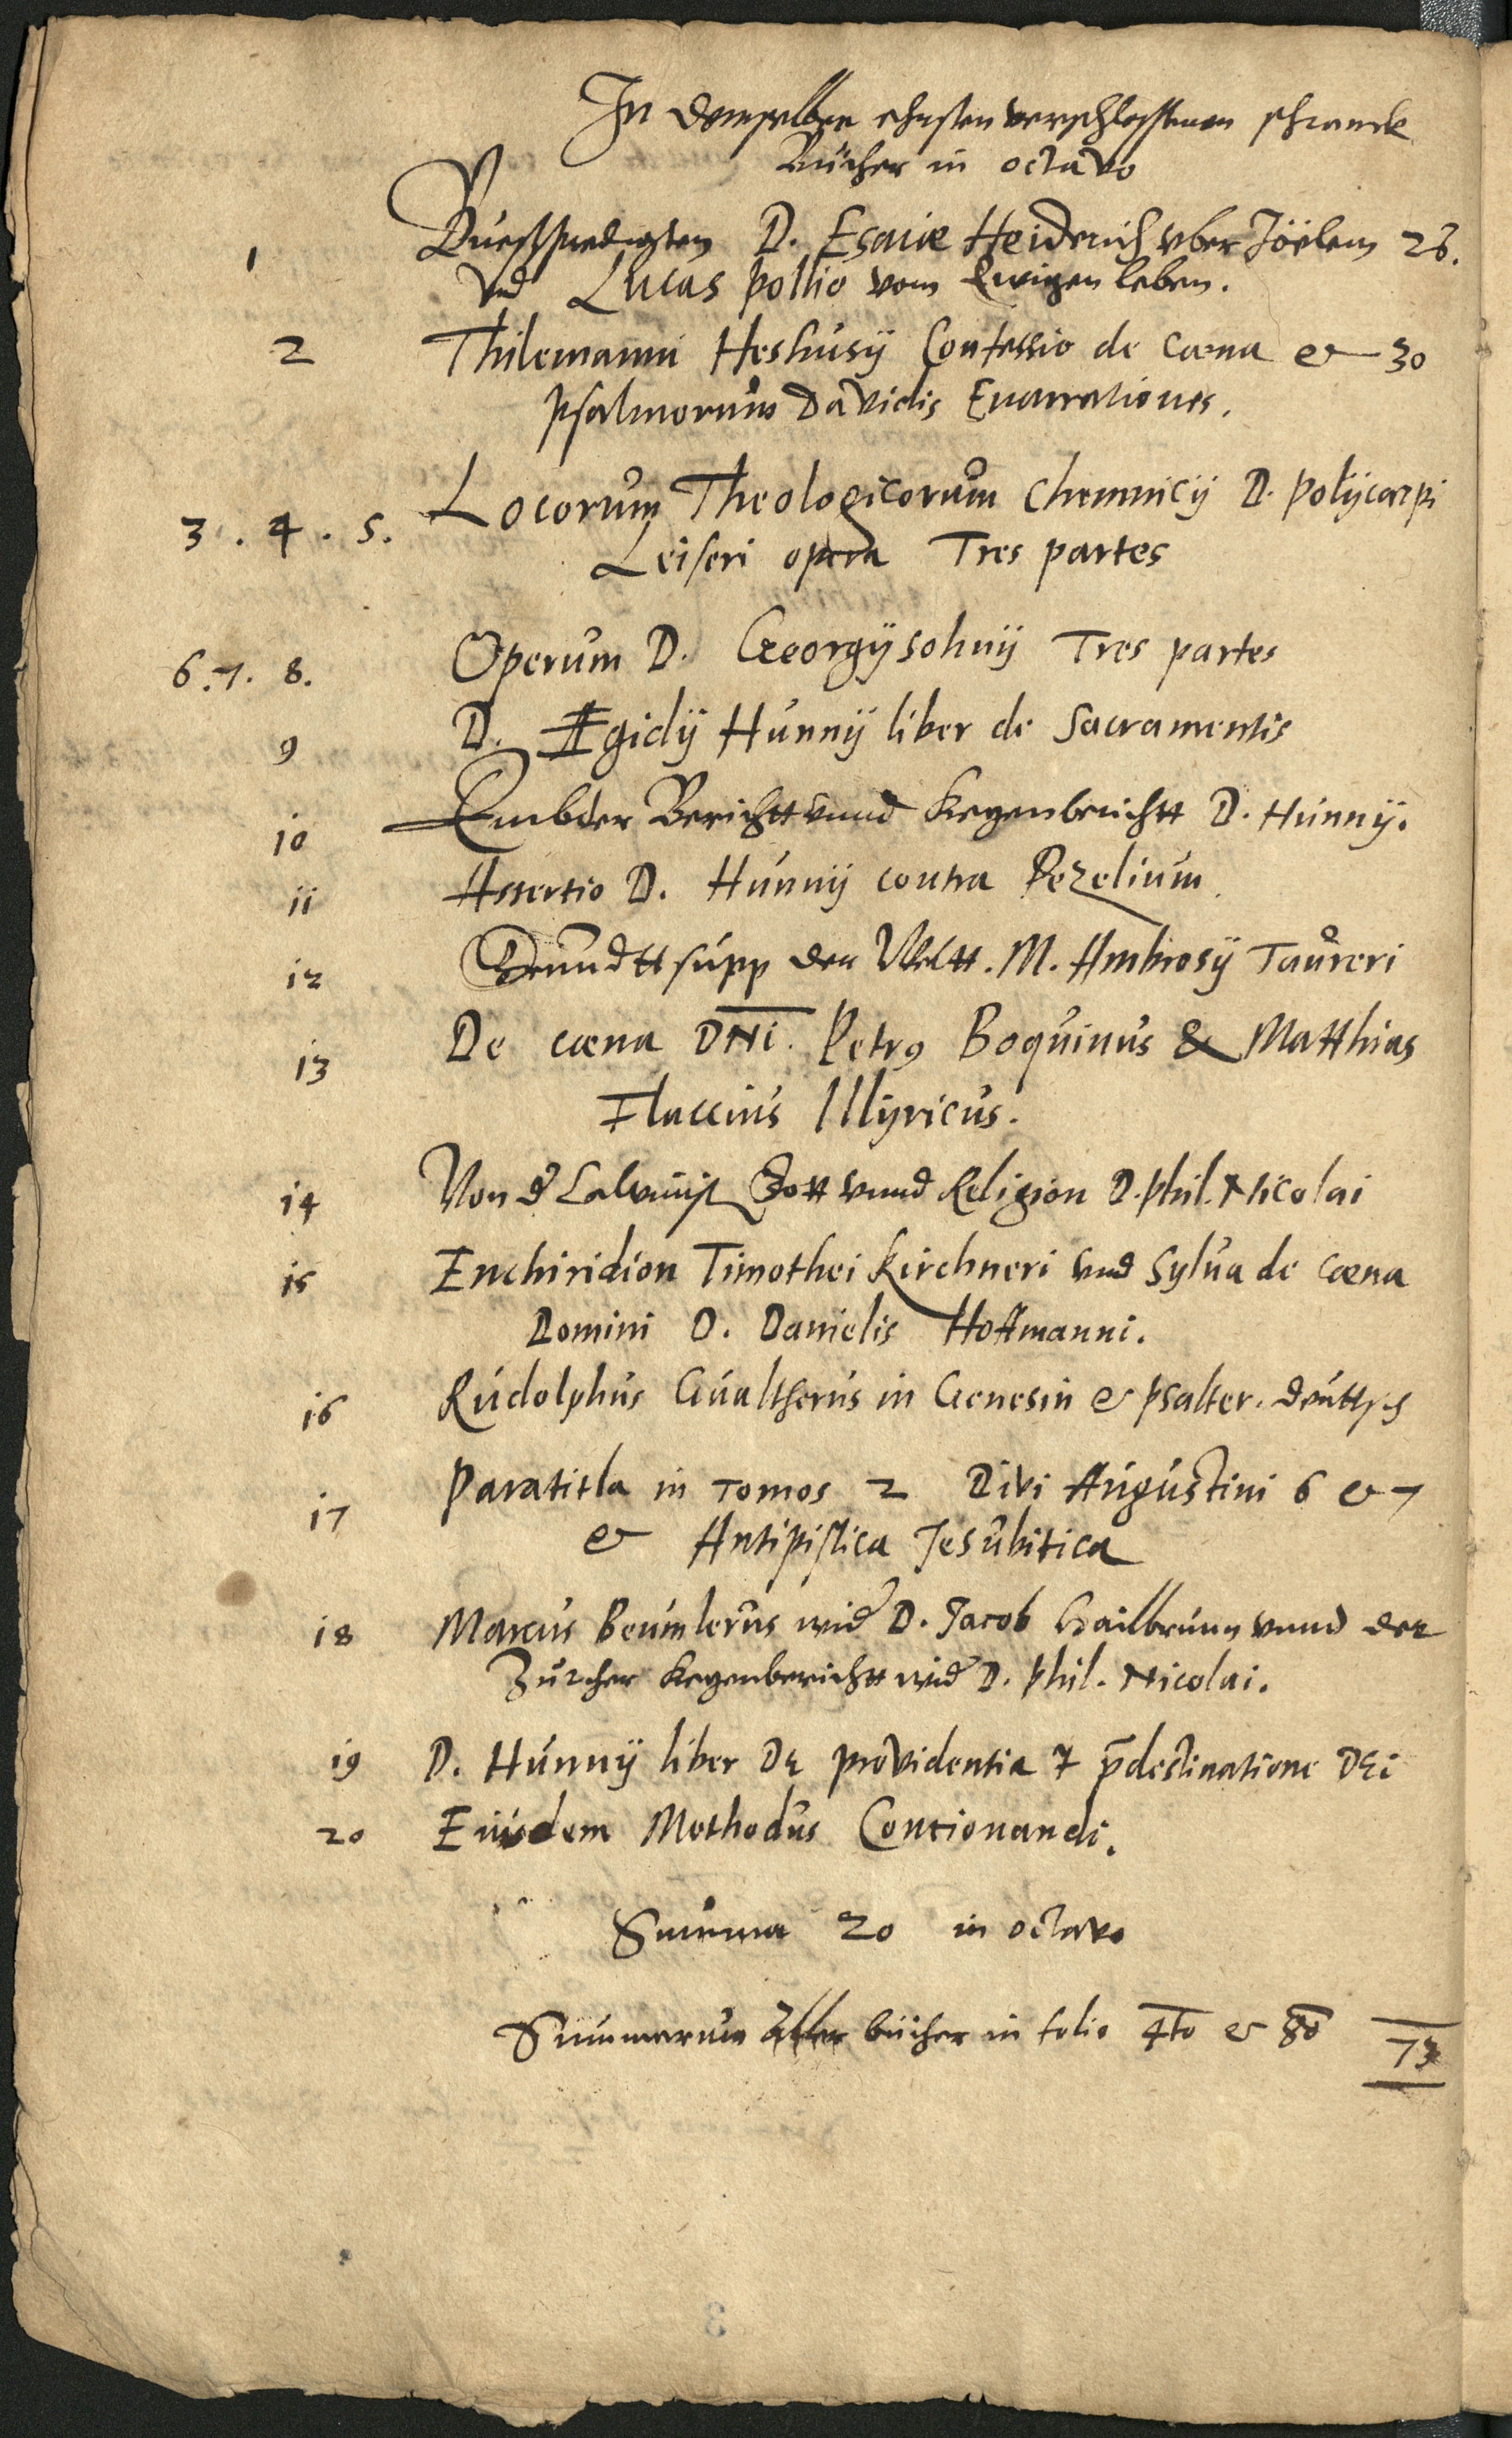 In demselben ersten verschlossenen schranck
Bücher in octavo
1 Bueßpredigten D. Esaiæ Heidenrich vber Joëlem 26.
vnd Lucas pollio vom Ewigen leben.
2 Thilemanni Heshusij Confessio de cœna & 30
psalmorum Davidis Enarrationes.
3 . 4 . 5. Locorum Theologicorum Chemnicij D. polijcarpi
Leiseri opera Tres partes
6. 7. 8. Operum D. Georgij sohnij Tres partes
9 D. Ægidij Hunnij liber de Sacramentis
10 Embder Berichtt vnnd kegenberichtt D. Hunnij.
11 Assertio D. Hunnij contra Pezelium.
12 Grundttsupp der Weltt. M. Ambrosij Taureri
13 De cœna DNi. Petrꝯ Boquinus & Matthias
Flaccius Illyricus.
14 Von d Caluinist Gott vnnd Religion D. phil. Nicolai
15 Enchiridion Timothei Kirchneri vnd Sylua de cœna
Domini D. Danielis Hoffmanni.
16 Rudolphus Gualtherus in Genesin & psalter. deuttsch
17 Paratitla in Tomos 2 Divi Augustini 6 & 7
& Antipistica Jesubitica
18 Marcus Beumlerus wid D. Jacob Hailbrunn vnnd der
Zürcher kegenberichtt wid D. phil. Nicolai.
19 D. Hunnij liber DE providentia & p̄destinatione DEi
20 Eiusdem Methodus Concionandi.
Summa 20 in octavo
Summarum aller bücher in folio 4to & 8o 73
3